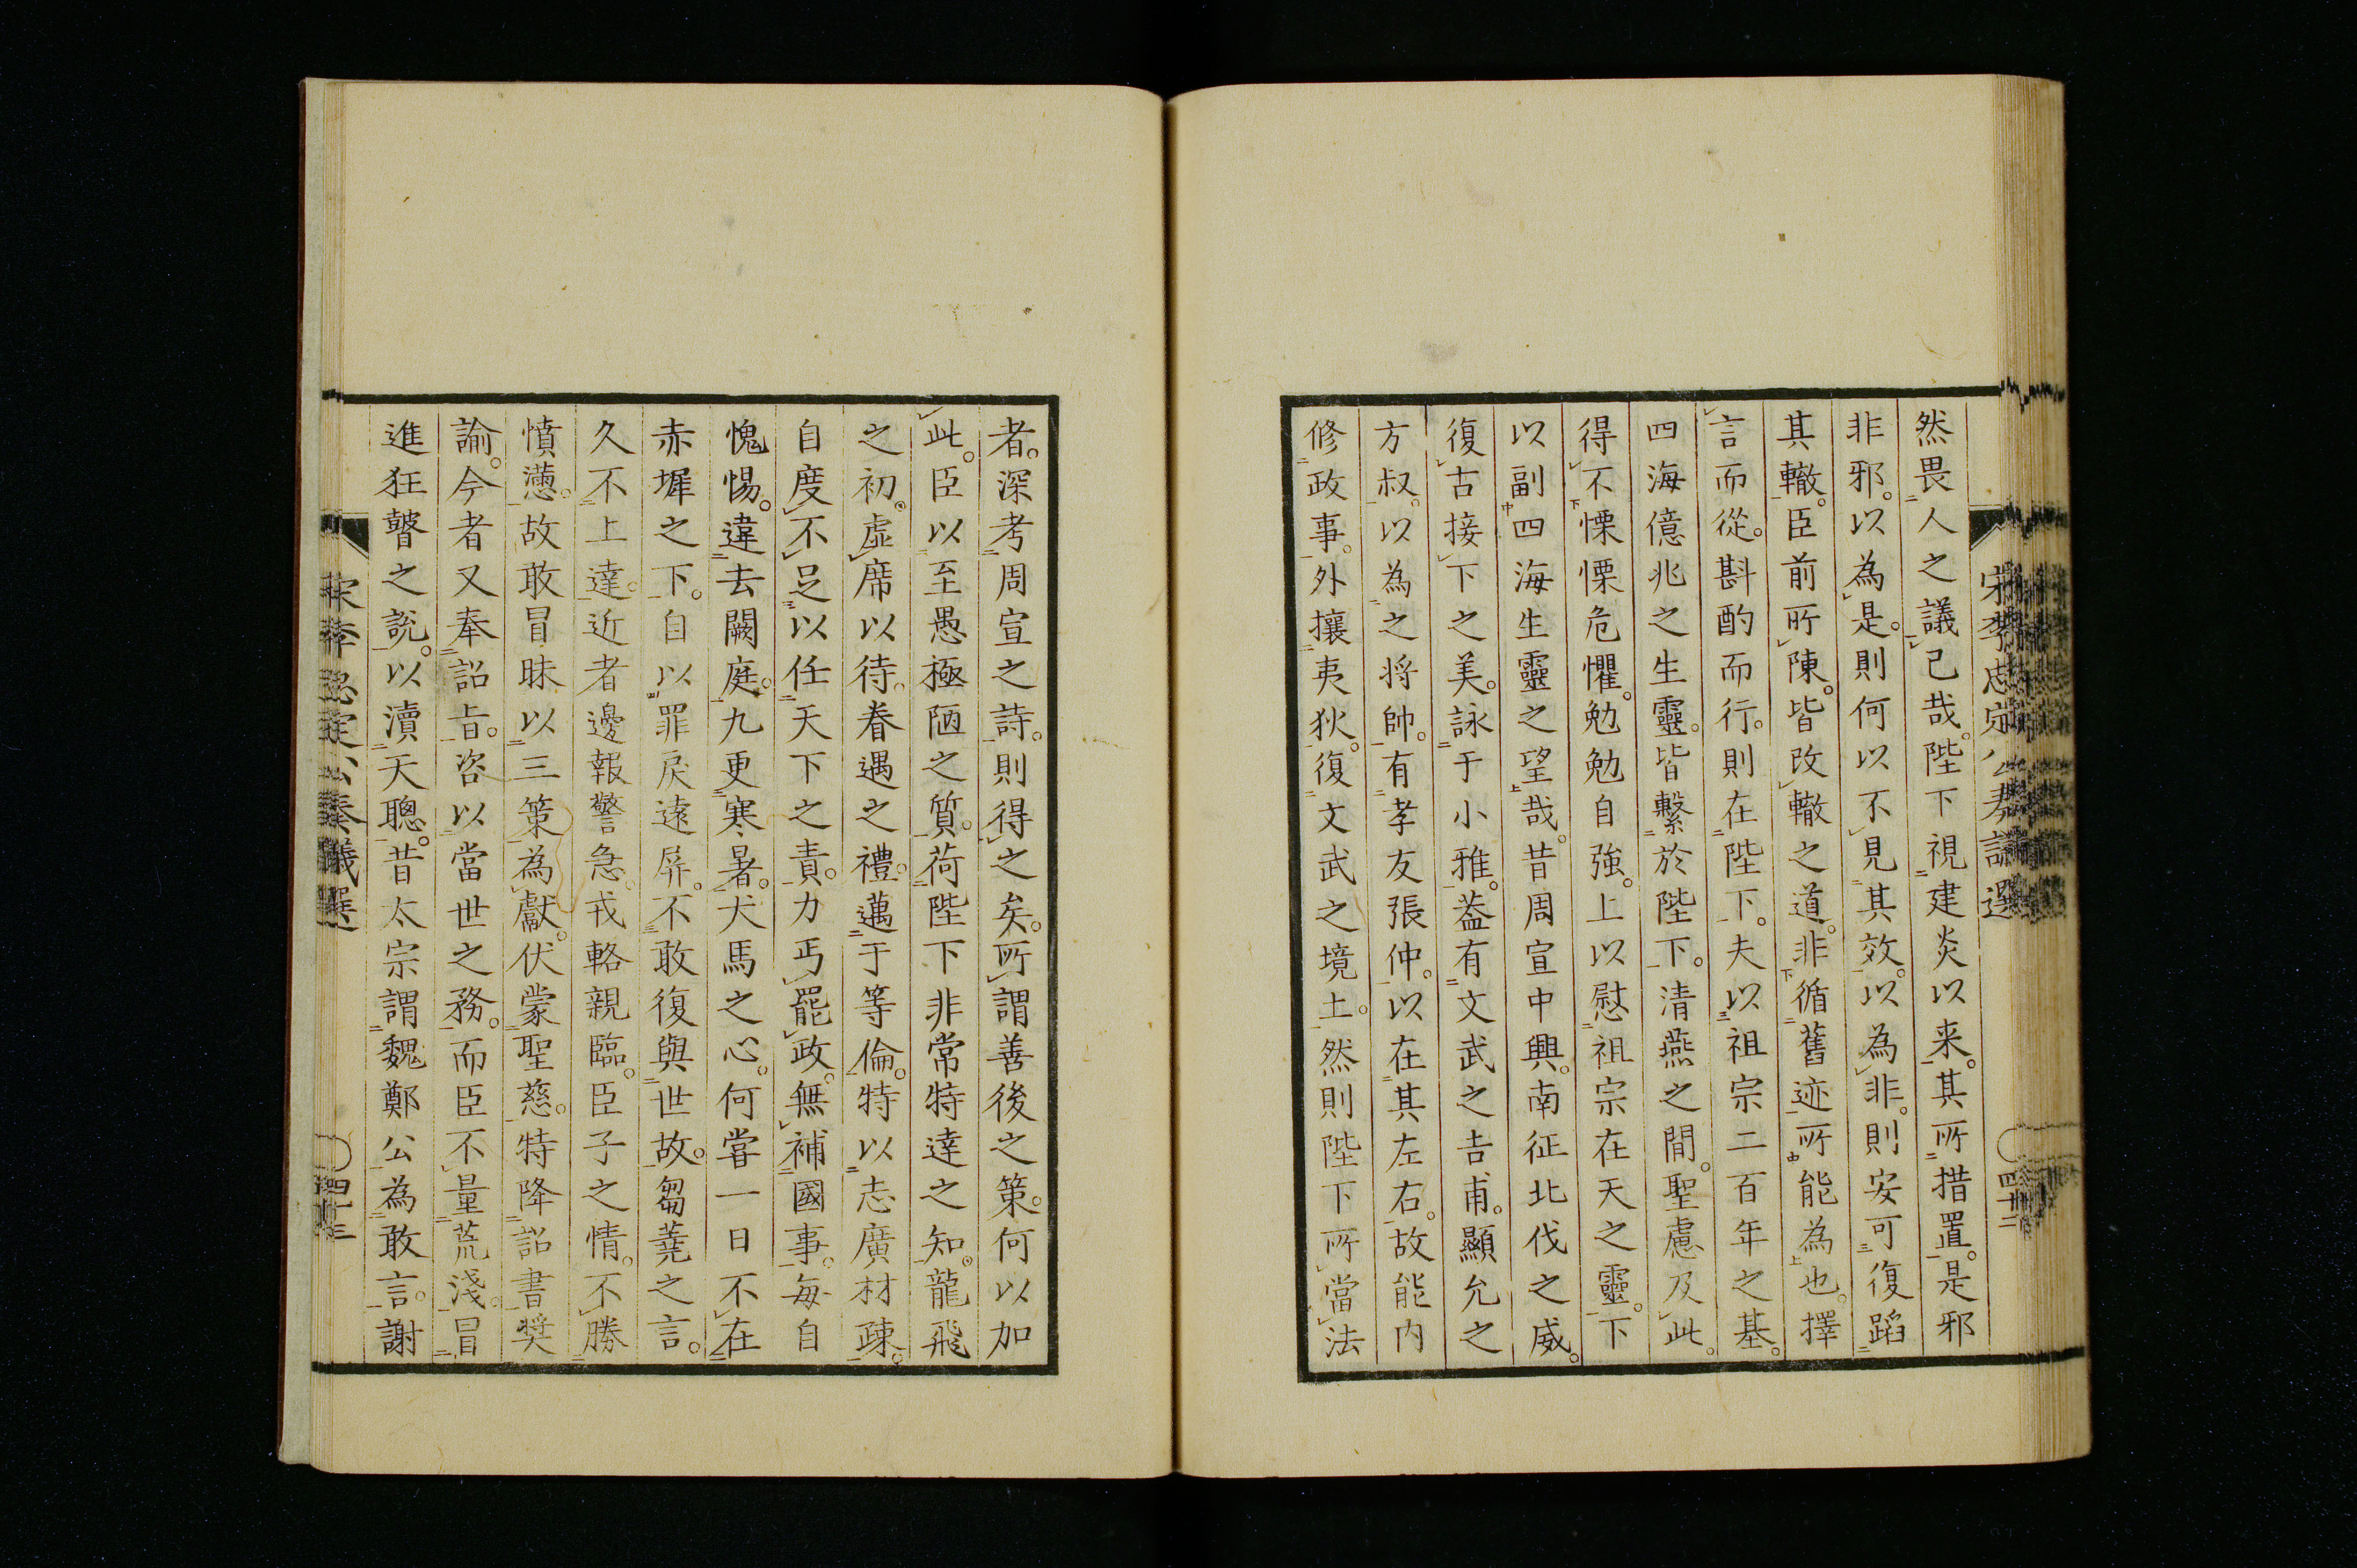 宋李忠定公奏議選
四十二
然畏人之議己哉。陛下視建炎以来。其所措置。是邪
非邪。以為是。則何以不見其效。以為非。則安可復蹈
其轍。臣前所陳。皆改轍之道。非循舊迹所能為也。擇
言而從。斟酌而行。則在陛下。夫以祖宗二百年之基。
四海億兆之生靈。皆繫於陛下。清燕之間。聖慮及此。
得不慄慄危懼。勉勉自強。上以慰祖宗在天之靈。下
以副四海生靈之望哉。昔周宣中興。南征北伐之威。
復古接下之美。詠于小雅。蓋有文武之吉甫。顯允之
方叔。以為之将帥。有孝友張仲。以在其左右。故能内
修政事。外攘夷狄。復文武之境土。然則陛下所當法
者。深考周宣之詩。則得之矣。所謂善後之策。何以加
此。臣以至愚極陋之質。荷陛下非常特達之知。龍飛
之初。虚席以待。眷遇之禮。邁于等倫。特以志廣材疎。
自度不足以任天下之責。力丐罷政。無補國事。每自
愧惕。違去闕庭。九更寒暑。犬馬之心。何嘗一日不在
赤墀之下。自以罪戾遠屏。不敢復與世故。芻蕘之言。
久不上達。近者邊報警急。戎輅親臨。臣子之情。不勝
憤懣。故敢冒昧以三策為獻。伏蒙聖慈。特降詔書奬
諭。今者又奉詔旨。咨以當世之務。而臣不量荒淺。冒
進狂瞽之説。以瀆天聰。昔太宗謂魏鄭公為敢言。謝
宋李忠定公奏議選
四十三